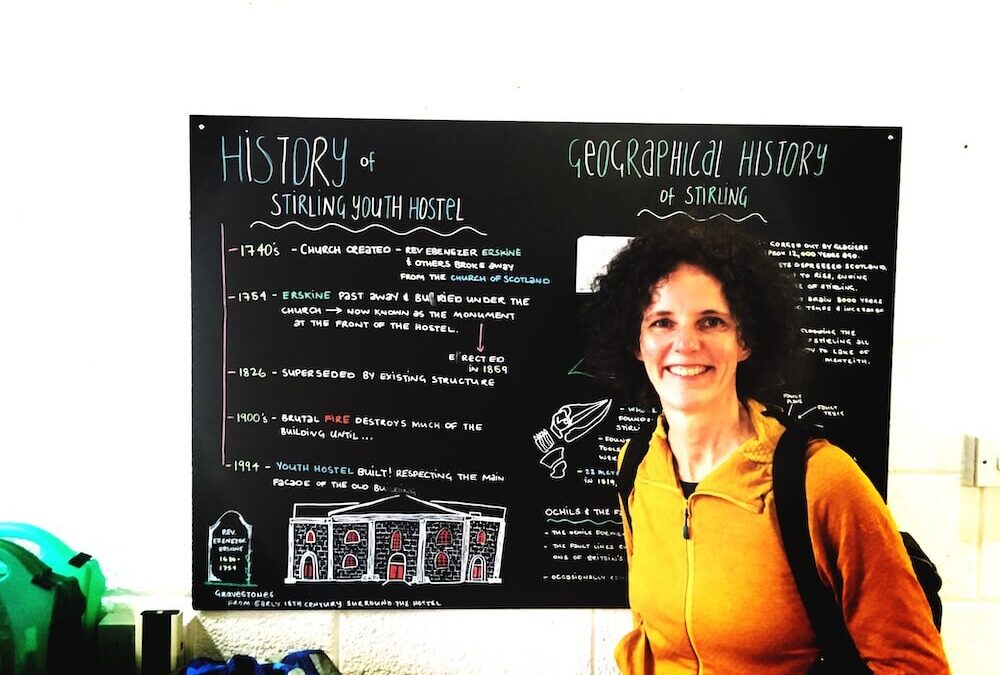 HISTORY of
STIRLING YOUTH HOSTEL
1740's - CHURCH CREATED - REV EBENEZER ERSKINE
& OTHERS BROKE AWAY
FROM THE CHURCH OF SCOTLAND
1754 - ERSKINE PAST AWAY & BURRIED UNDER THE
CHURCH → NOW KNOWN AS THE MONUMENT
AT THE FRONT OF THE HOSTEL.
ERECTED
IN 1859
1826 - SUPERSEDED BY EXISTING STRUCTURE
1900's - BRUTAL FIRE DESTROYS MUCH OF THE
BUILDING UNTIL ...
1994 - YOUTH HOSTEL BUILT! RESPECTING THE MAIN
FACADE OF THE OLD
REV.
EBENEZER
ERSKINE
1680-
1754
GRAVESTONES
FROM EARLY 18TH CENTURY SURROUND THE HOSTEL
GEOGRAPHICAL HISTORY
OF STIRLING
GORGED OUT BY GLACIERS
FROM 12,000 YEARS AGO.
DEPRESSED SCOTLAND
TO RISE, ENDING
OF STIRLING.
8000 YEARS
TEMPS & INCREASED
FLOODING THE
STIRLING ALL
TO LAKE OF
MENTEITH.
FAULT
FAULT
- WHO
FOUND
STIRLI
- FOUND
TOOLS
WER
- 22 METR
IN 1819,
OCHILS & THE F
- THE OCHILS FORMED
- THE FAULT LINES
ONE OF BRITAIN'S
- OCCASIONALLY